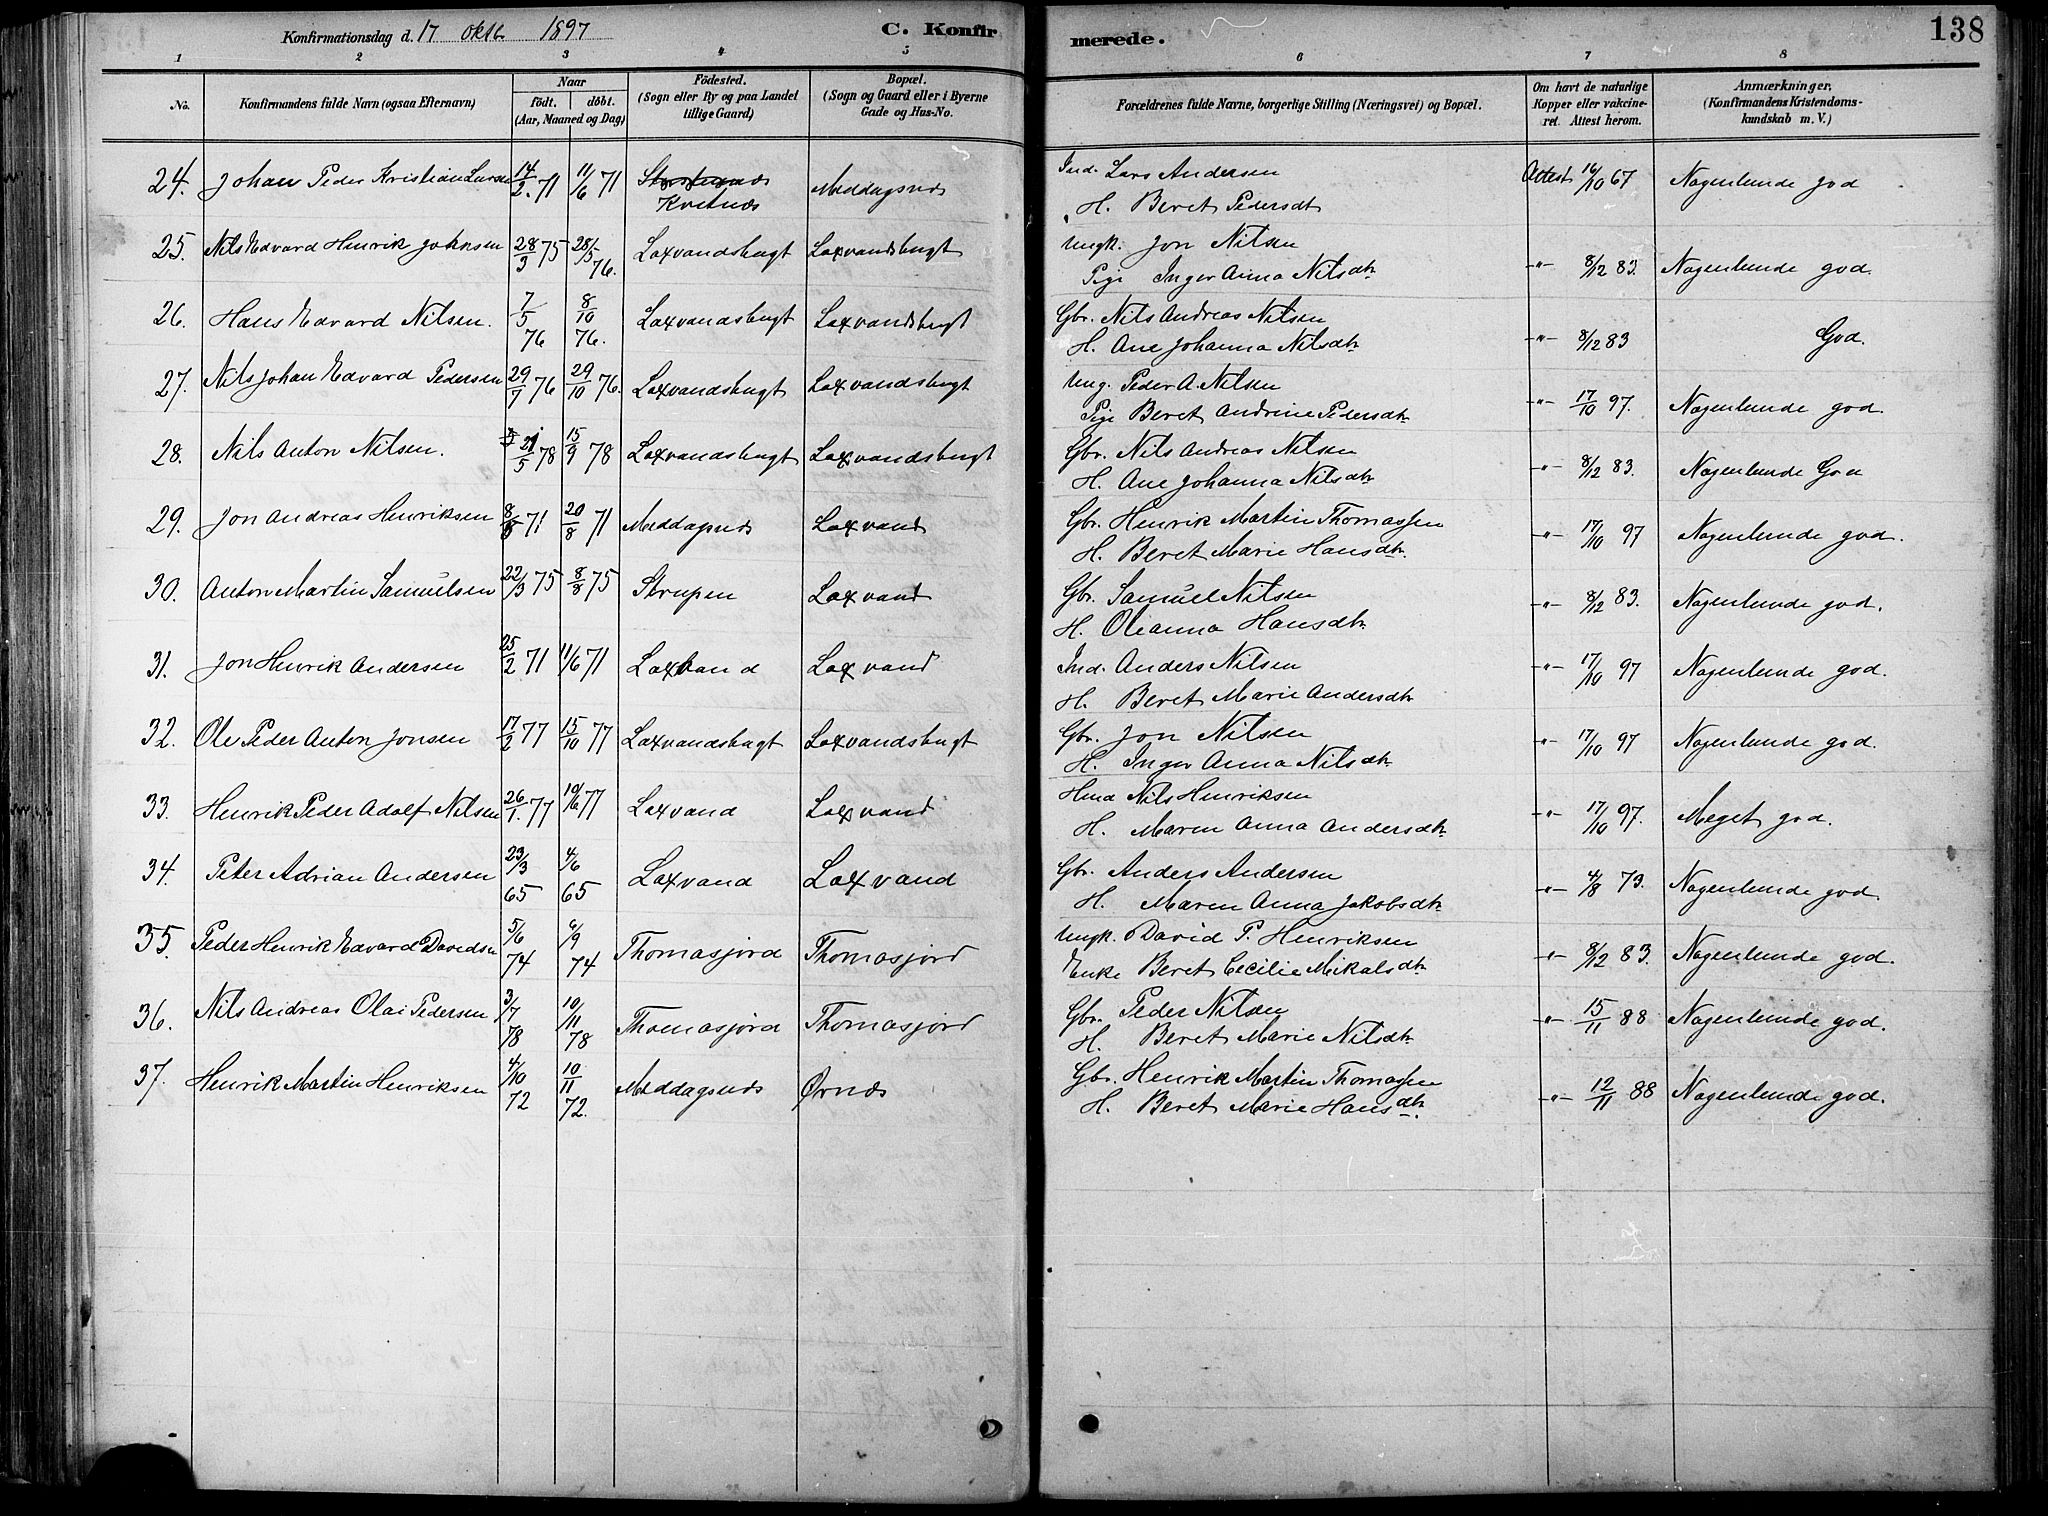 138
Konfirmationsdag d. 17 Oktb. 1897 C. Konfirmerede.
1 2 3 4 5 6 7 8
No. Konfirmandens fulde Navn (ogsaa Efternavn) Naar födt. döbt. (Aar, Maaned og Dag) Födested. (Sogn eller By og paa Landet tillige Gaard) Bopæl. (Sogn og Gaard eller i Byerne Gade og Hus-No. Forældrenes fulde Navne, borgerlige Stilling (Næringsvei) og Bopæl. Om havt de naturlige Kopper eller vakcineret. Attest herom. Anmærkninger, (Konfirmandens Kristendomskundskab m. V.)
24. Johan Peder Kristian Larsen 14/2 71 11/6 71 Kvitnæs Meddagsnæs Ind. Lars Andersen Attest 16/10 67 Nogenlunde god
H. Beret Pedersdt
25. Nils Edvard Henrik Johnsen 28/3 75 28/5 76. Laxvandsbugt Laxvandsbugt Ungk. Jon Nilsen
Pige Inger Anna Nilsdtr -"- 8/12 83. Nogenlunde god.
26. Hans Edvard Nilsen. 7/5 76 8/10 76. Laxvandsbugt Laxvandsbugt Gbr. Nils Andreas Nilsen
H. Ane Johanna Nilsdtr -"- 8/12 83 God.
27. Nils Johan Edvard Pedersen 29/7 76 29/10 76. Laxvandsbugt Laxvandsbugt Ung. Peder A. Nilsen
Pige Beret Andrine Pedersdtr -"- 17/10 97. Nogenlunde god.
28. Nils Anton Nilsen. 21/5 78 15/9 78 Laxvandsbugt Laxvandsbugt Gbr. Nils Andreas Nilsen
H. Ane Johanna Nilsdtr -"- 8/12 83. Nogenlunde God
29. Jon Andreas Henriksen 8/5 71 20/8 71 Meddagsnæs Laxvand Gbr. Henrik Martin Thomassen
H. Beret Marie Hansdtr. -"- 17/10 97 Nogenlunde god.
30. Anton Martin Samuelsen 22/3 75 8/8 75 Strupen Laxvand Gbr. Samuel Nilsen
H. Oleanna Hansdtr -"- 8/12 83. Nogenlunde god.
31. Jon Henrik Andersen 25/2 71 11/6 71 Laxvand Laxvand Ind. Anders Nilsen
H. Beret Marie Andersdtr -"- 17/10 97 Nogenlunde god.
32. Ole Peder Anton Jonsen 17/2 77 15/10 77 Laxvandsbugt Laxvandsbugt Gbr. Jon Nilsen
H. Inger Anna Nilsdtr -"- 17/10 97 Nogenlunde god.
33. Henrik Peder Adolf Nilsen 26/1. 77 10/6 77 Laxvand Laxvand Nils Henriksen
H. Maren Anna Andersdtr -"- 17/10 97. Meget god.
34. Peter Adrian Andersen 23/3 65 4/6 65 Laxvand Laxvand Gbr. Anders Andersen
H. Maren Anna Jakobsdtr -"- 4/8 73. Nogenlunde god
35. Peder Henrik Edvard Davidsen 5/6 74 6/9 74 Thomasjord Thomasjord Ungk. David P. Henriksen
Enke Beret Cecilie Mikalsdtr -"- 8/12 83. Nogenlunde god.
36. Nils Andreas Olai Pedersen 3/7 78 10/11 78 Thomasjord Thomasjord Gbr. Peder Nilsen
H. Beret Marie Nilsdtr. -"- 15/11 88 Nogenlunde god.
37. Henrik Martin Henriksen 4/10 72 10/11 72. Meddagsnæs Ørnæs Gbr. Henrik Martin Thomassen
H. Beret Marie Hansdtr. -"- 12/11 88 Nogenlunde god.